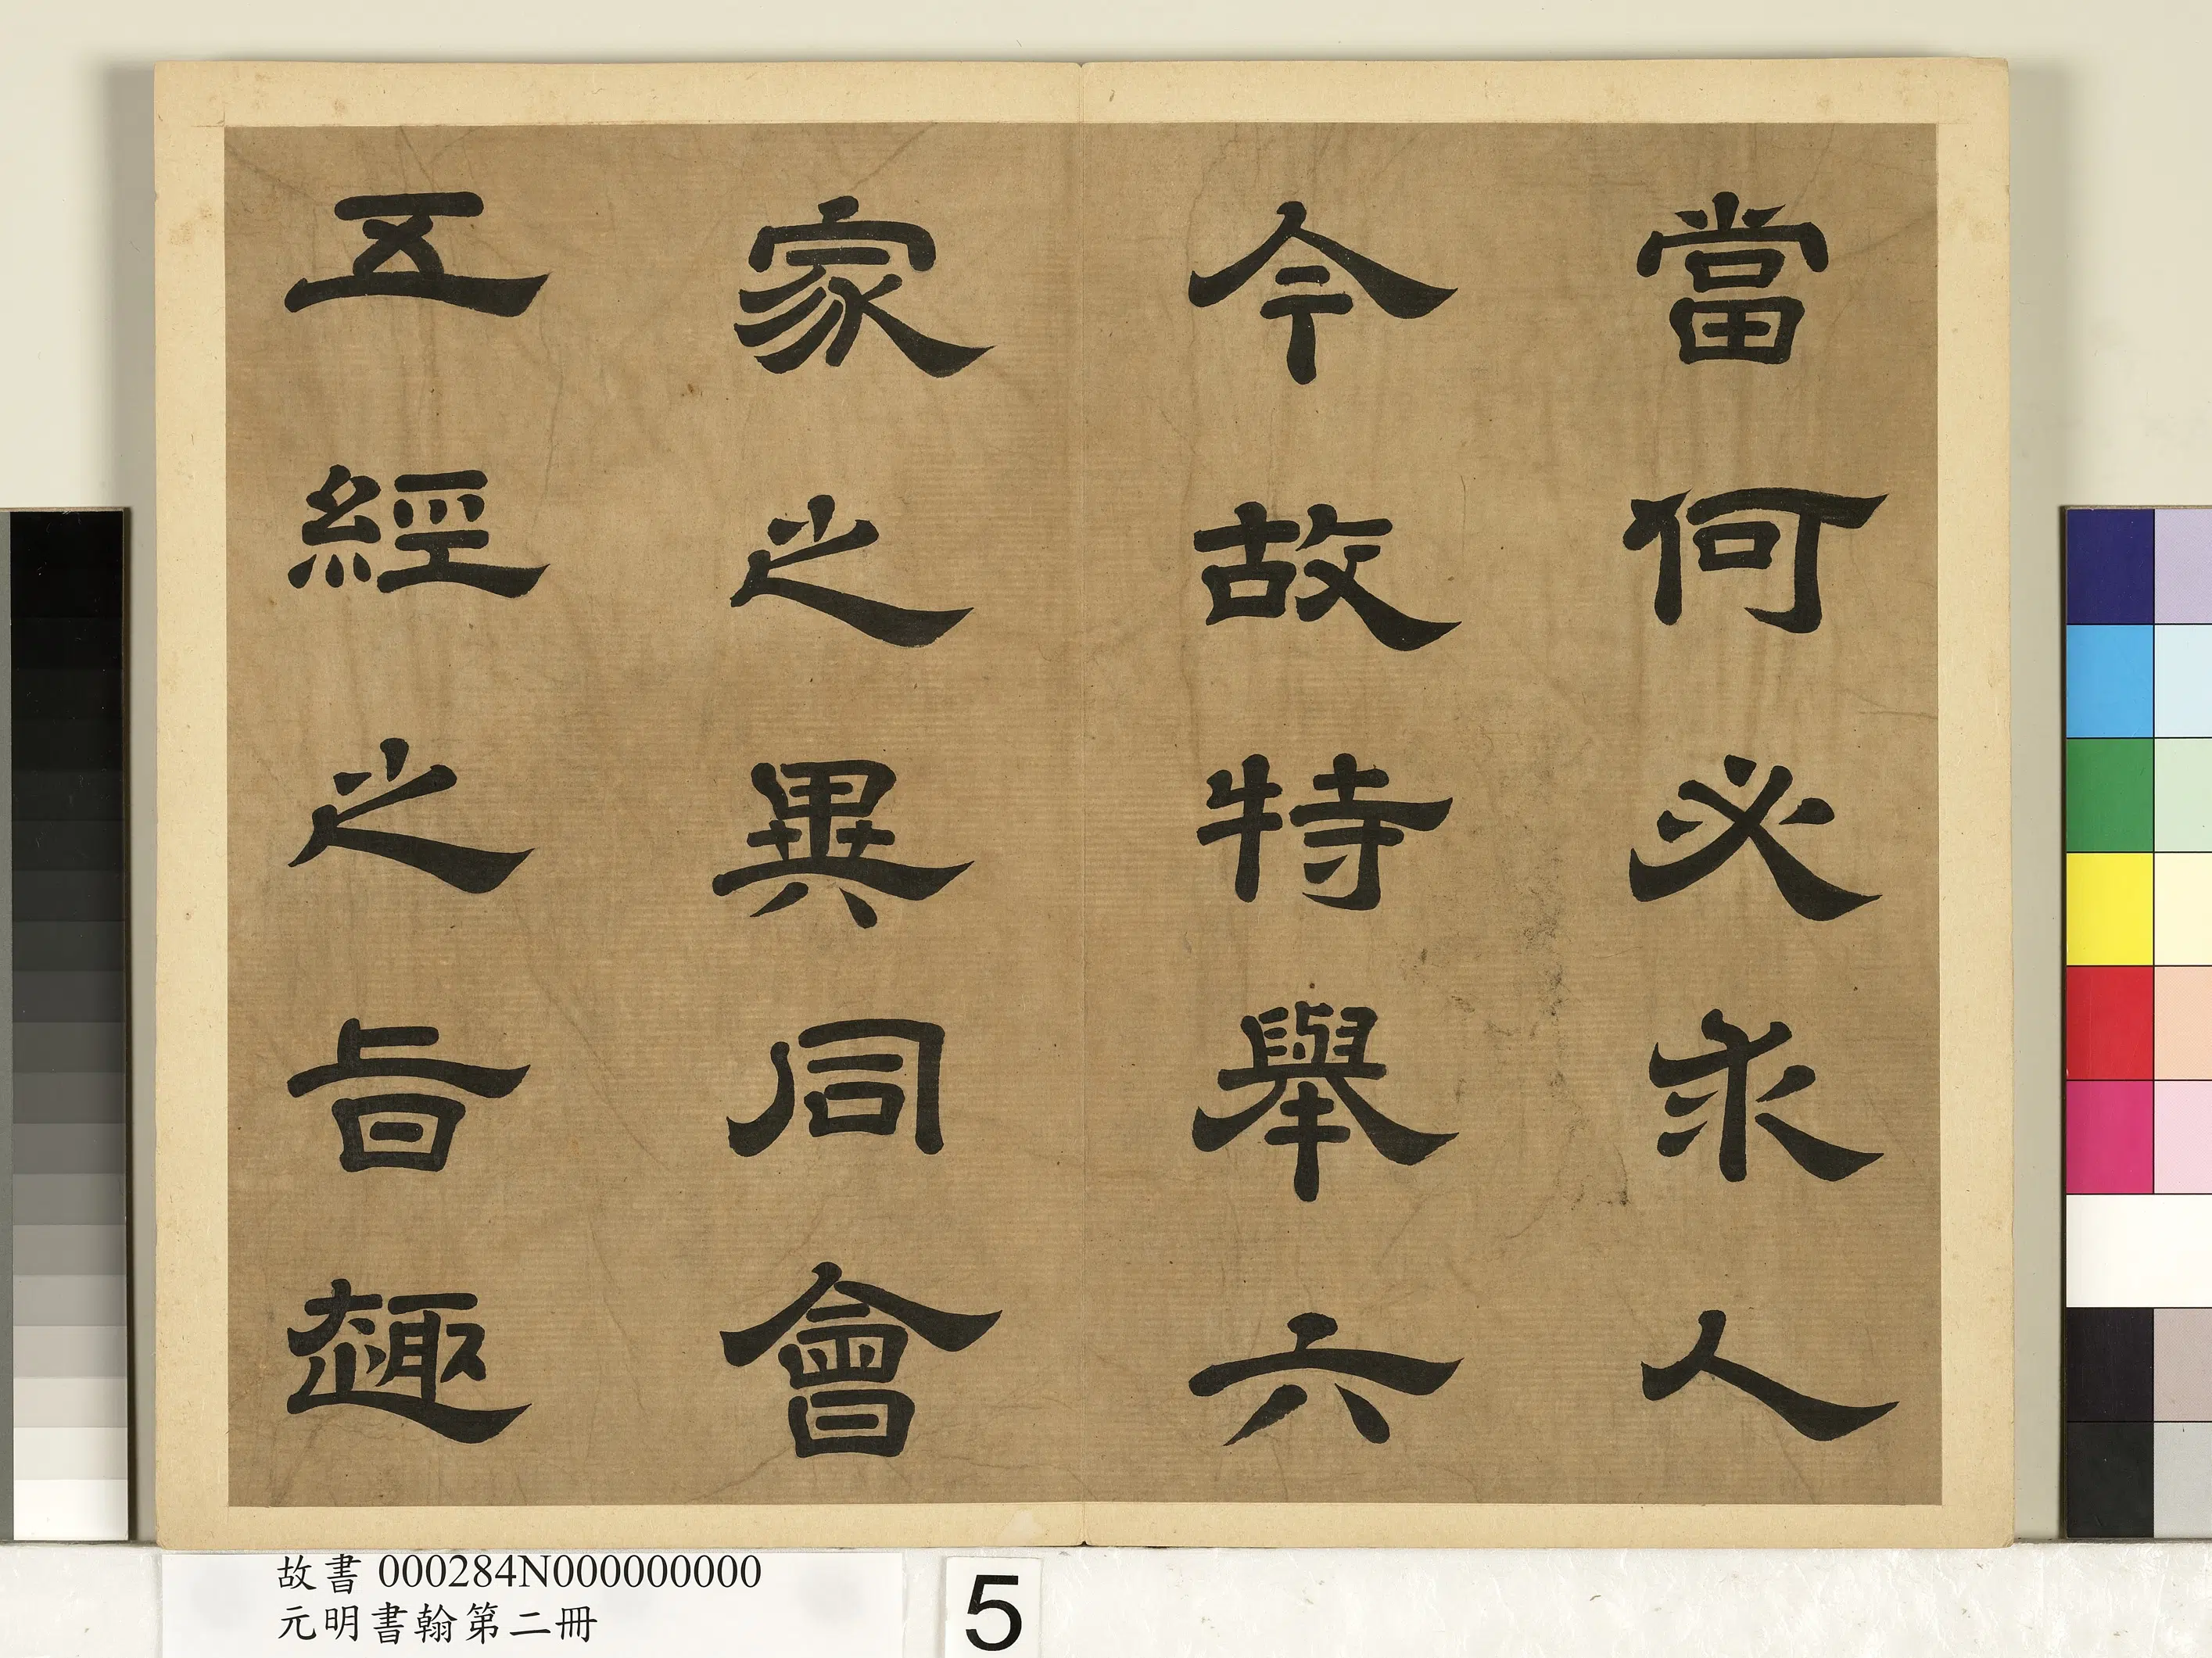 當何必求人
今故特舉六
家之異同會
五經之旨趣
故書 000284N000000000
元明書翰第二冊
5